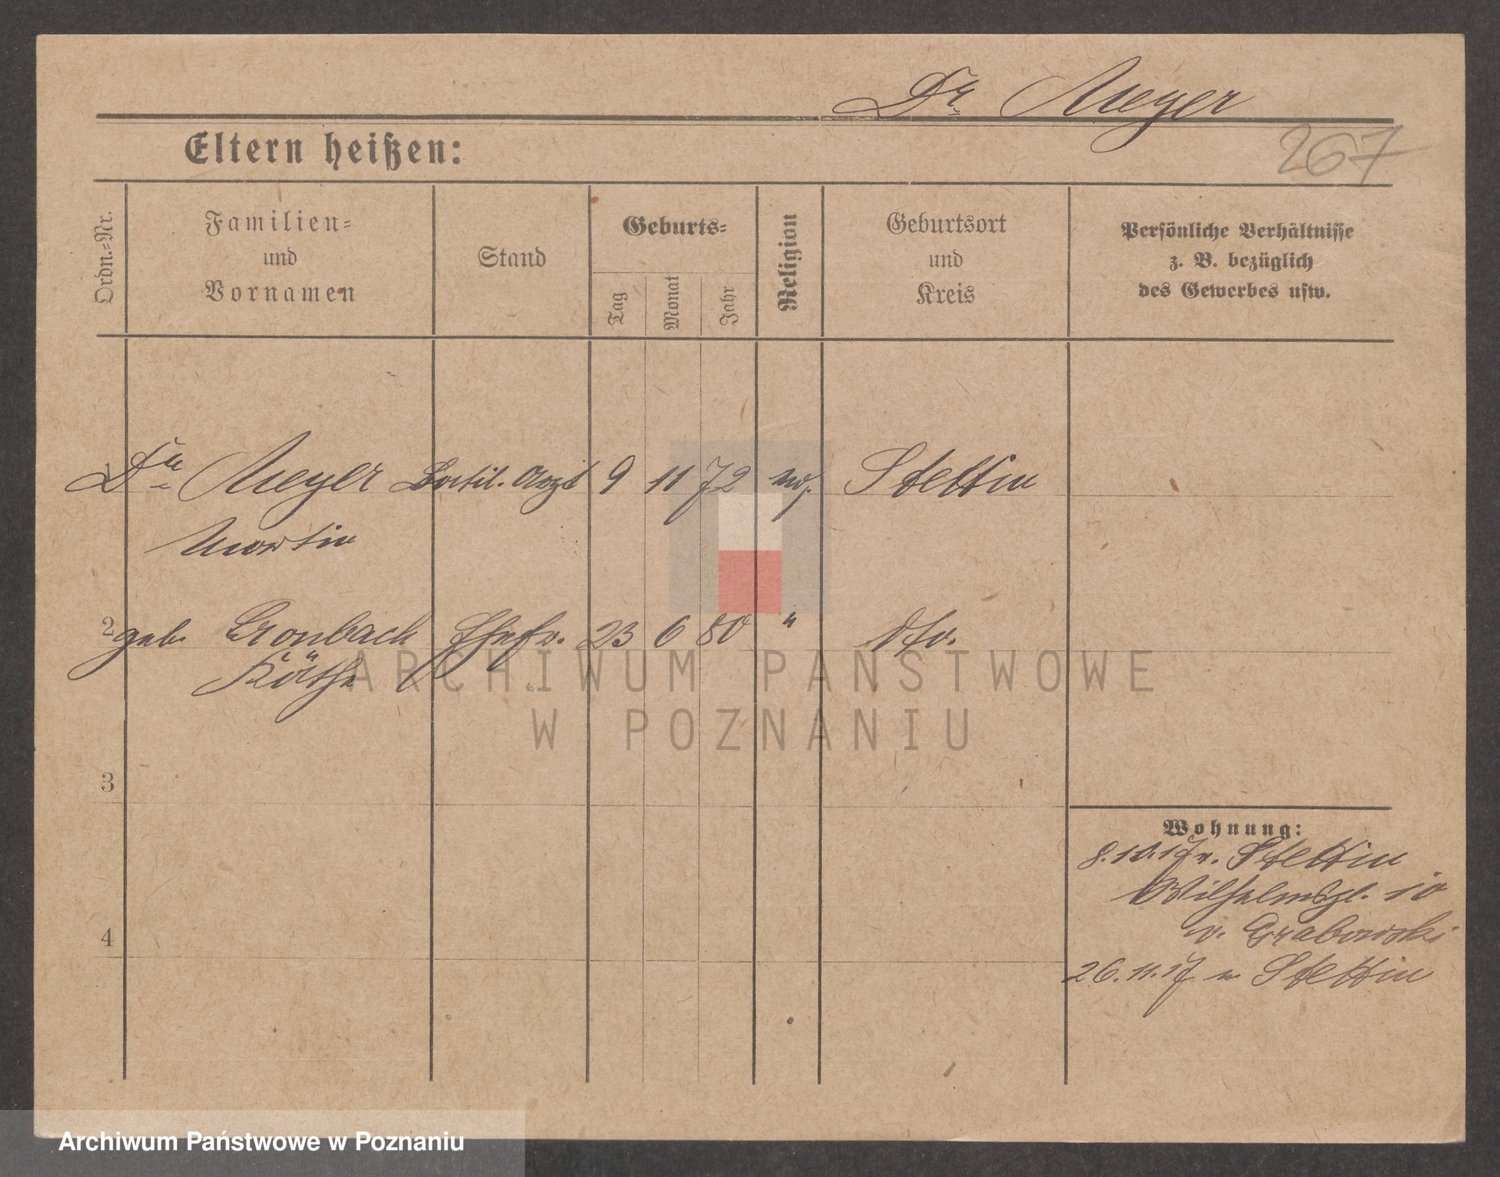 Dr. Meyer
267
Eltern heißen:
Ordn.=Nr.
Familien=
und
Vornamen
Stand
Geburts=
Tag
Monat
Jahr
Religion
Geburtsort
und
Kreis
Persönliche Verhältnisse
z. B. bezüglich
des Gewerbes usw.
1 Dr. Meyer 9 11 72 Stettin
Martin
2 geb. Cronbach Ehefr. 23 6 80 " dto.
Käthe
3
4
Wohnung:
8.10.17 v. Stettin
Wilhelmspl. 10
v. Grabowski
26.11.17 n. Stettin
ARCHIWUM PAŃSTWOWE
W POZNANIU
Archiwum Państwowe w Poznaniu